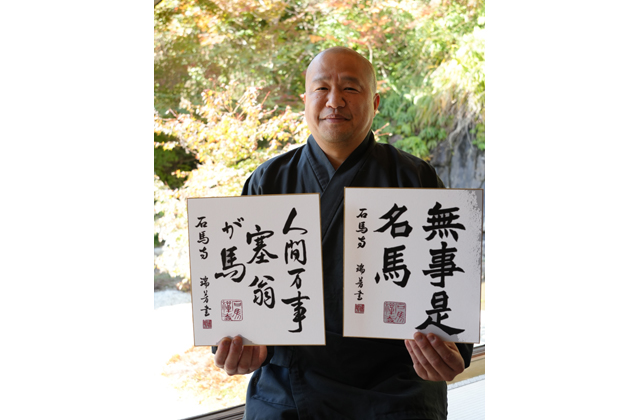 人間万事
塞翁
が馬
石馬寺 瑞芳書
無事是
名馬
石馬寺 瑞芳書